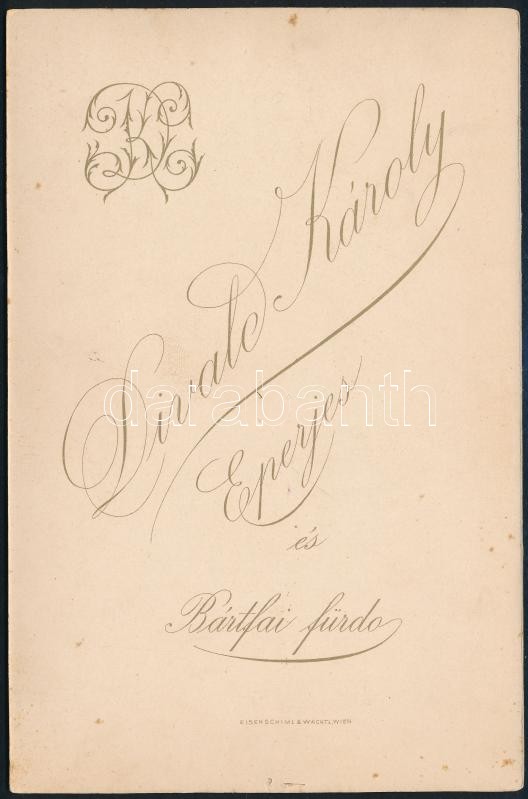 Divald Károly
Eperjes
és
Bártfai fürdo
EISENSCHIML & WACHTL, WIEN
darabanth